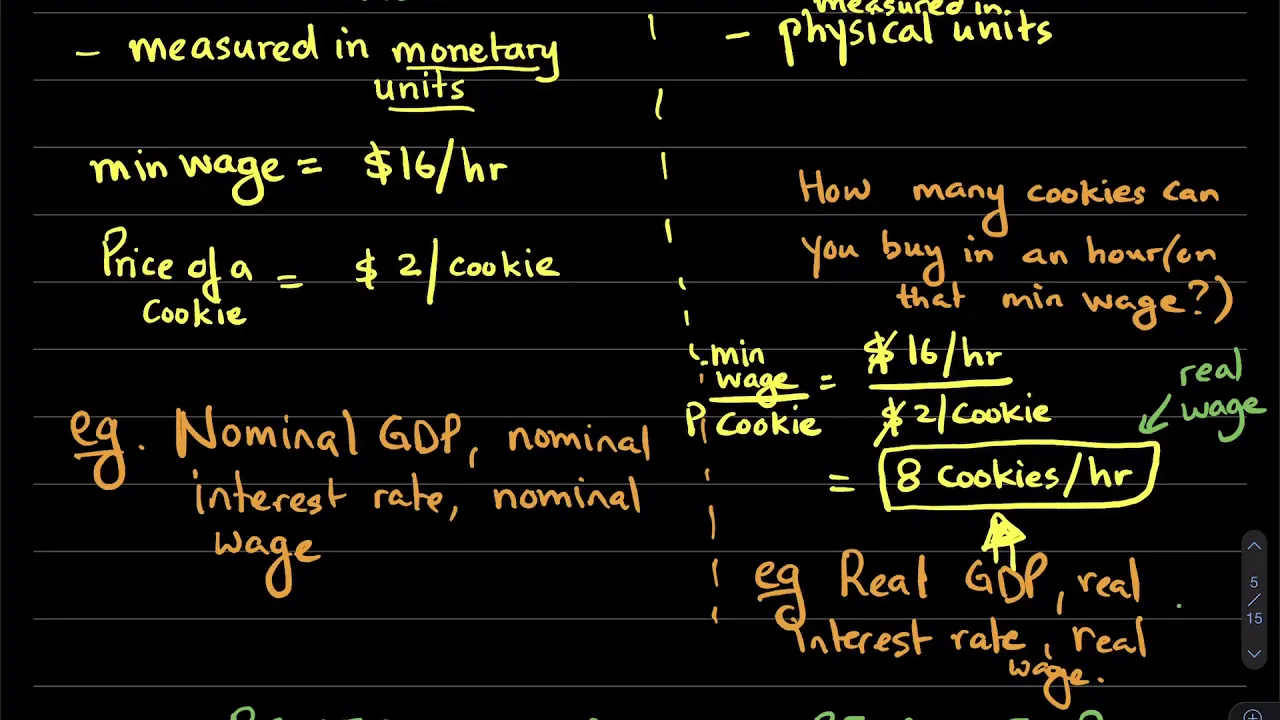 - measured in monetary
units
min wage = $16/hr
Price of a = $2/cookie
cookie
eg. Nominal GDP, nominal
interest rate, nominal
wage
measured in
- physical units
How many cookies can
you buy in an hour (on
that min wage?)
min
wage = $16/hr
P cookie $2/cookie
real
wage
= 8 cookies/hr
eg Real GDP, real
interest rate, real
wage.
5
/
15